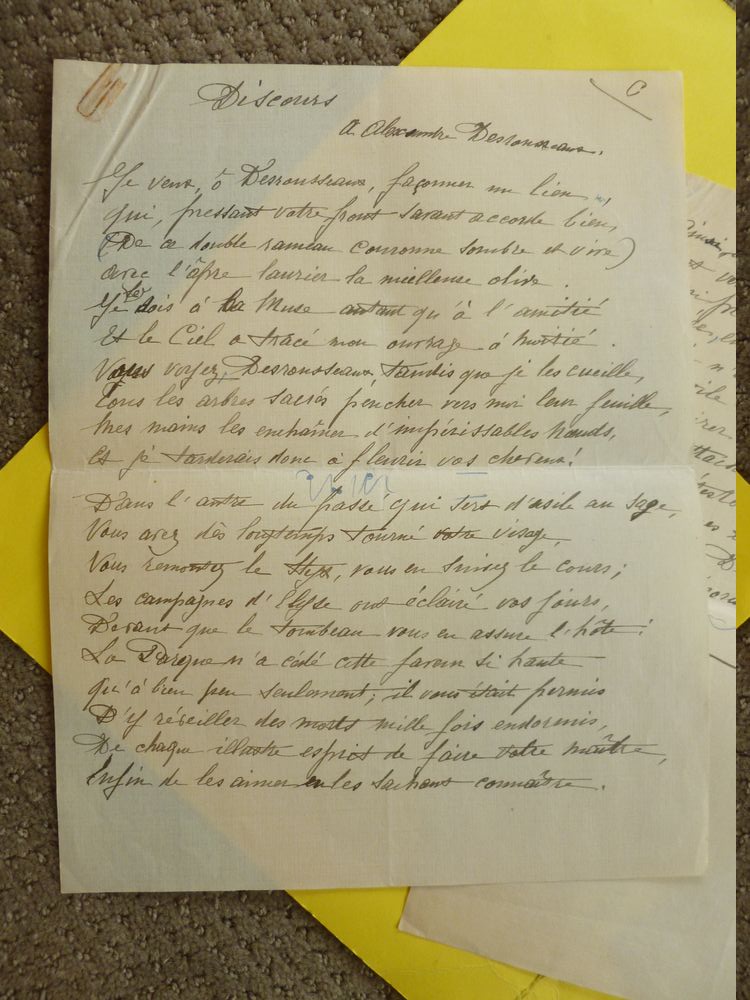 C
Discours
A Alexandre Desrousseaux.
Je veux, ô Desrousseaux, façonner un lien,
Qui, pressant votre front savant accorde bien,
(De ce double rameau couronne sombre et vive)
Avec l'âpre laurier la mielleuse olive.
Je dois à la Muse autant qu'à l'amitié
Et le Ciel a tracé mon ouvrage à moitié.
Vous voyez, Desrousseaux tandis que je les cueille,
Tous les arbres sacrés pencher vers moi leur feuille,
Mes mains les enchaîner d'impérissables nœuds,
Et je tarderais donc à fleurir vos cheveux!
Dans l'antre du passé qui sert d'asile au sage,
Vous avez dès longtemps tourné votre visage,
Vous remontez le Styx, vous en suivez le cours;
Les campagnes d'Elyse ont éclairé vos jours,
Devant que le tombeau vous en assure l'hôte!
La Parque n'a cédé cette faveur si haute
Qu'à bien peu seulement; il vous était permis
D'y réveiller des morts mille fois endormis,
De chaque illustre esprit de faire votre maître,
Enfin de les aimer en les sachant connaître.